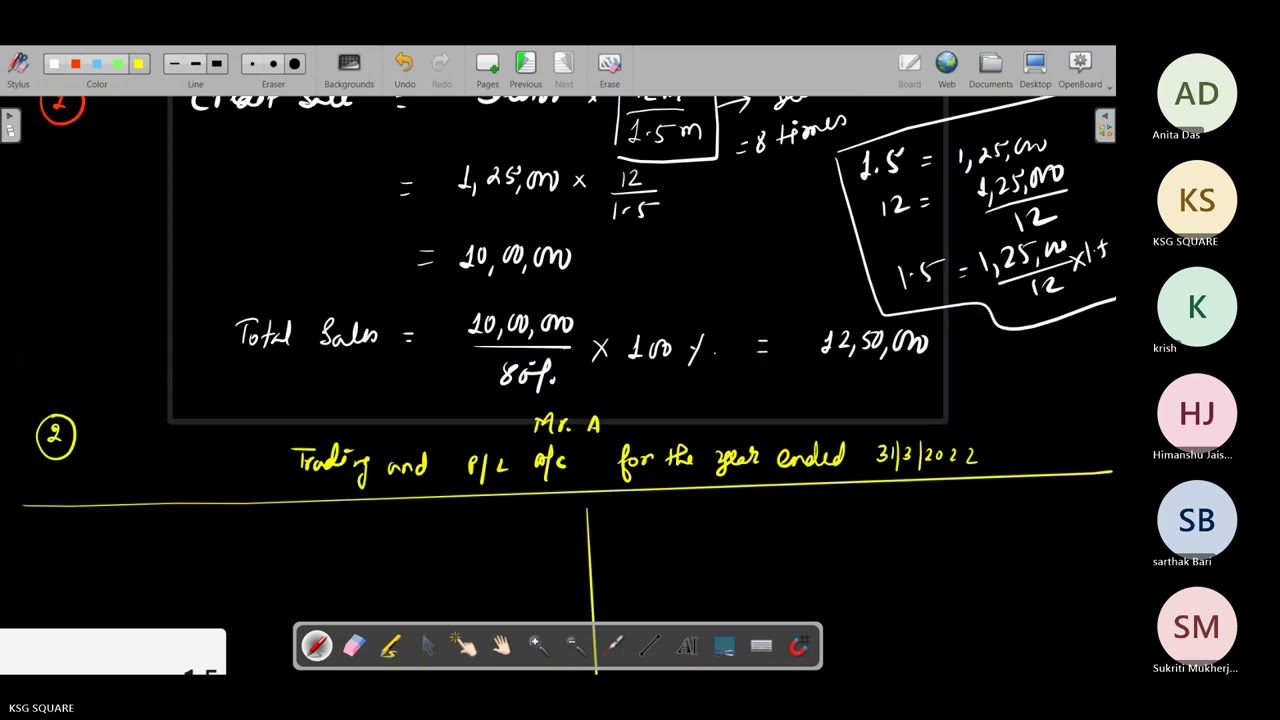 Stylus Color Line Eraser Backgrounds Undo Redo Pages Previous Next Erase Board Web Documents Desktop OpenBoard
1
=
1.5m
= 8 times
= 1,25,000 × 12/1.5
= 10,00,000
Total Sales = 10,00,000/80% × 100% = 12,50,000
1.5 = 1,25,000
12 = 1,25,000/12
1.5 = 1,25,000/12 × 1.5
2
Mr. A
Trading and P/L A/C for the year ended 31/3/2022
AI
AD
Anita Das
KS
KSG SQUARE
K
krish
HJ
Himanshu Jais...
SB
sarthak Bari
SM
Sukriti Mukherj...
KSG SQUARE